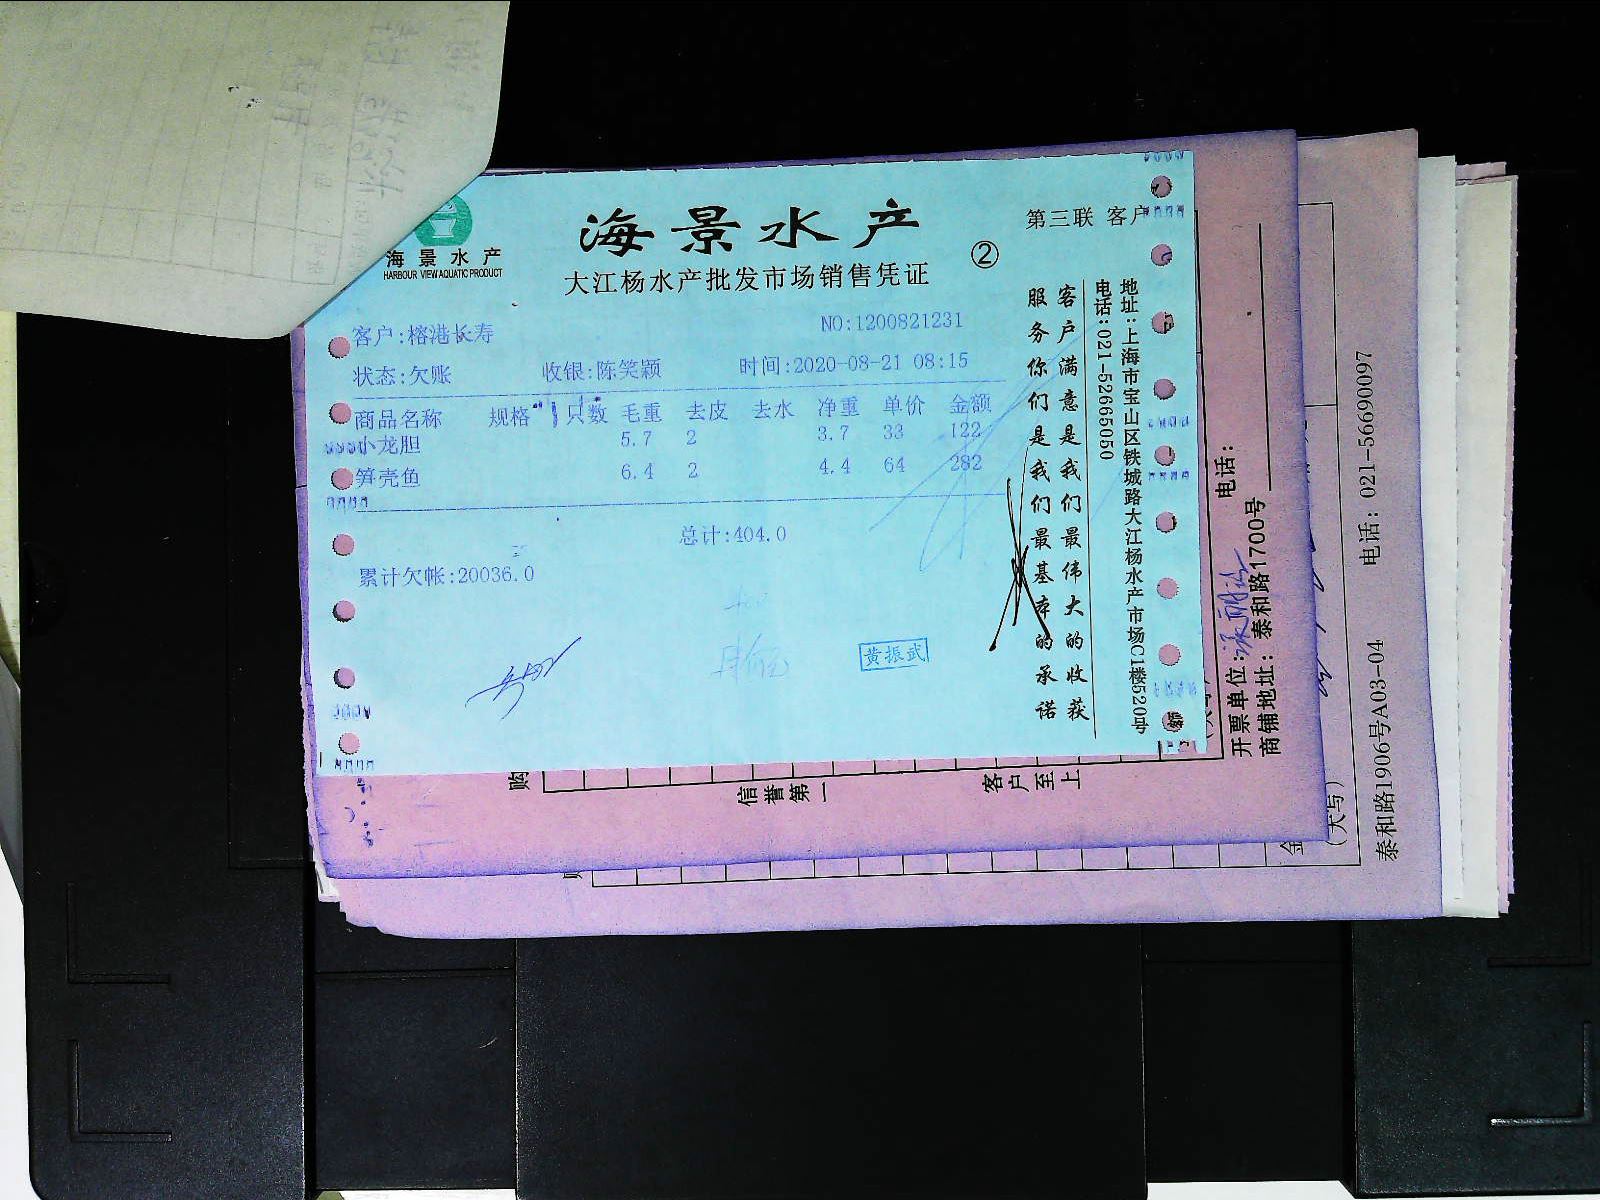 海景水产
HARBOUR VIEW AQUATIC PRODUCT
海景水产
大江杨水产批发市场销售凭证
②
第三联 客户
客户:榕港长寿
NO:1200821231
状态:欠账 收银:陈笑颖 时间:2020-08-21 08:15
商品名称 规格 只数 毛重 去皮 去水 净重 单价 金额
小龙胆 5.7 2 3.7 33 122
笋壳鱼 6.4 2 4.4 64 282
总计:404.0
累计欠帐:20036.0
黄振武
客户满意是我们最伟大的收获
服务你们是我们最基本的承诺
地址:上海市宝山区铁城路大江杨水产市场C1楼520号
电话:021-52665050
购
信誉第一
客户至上
开票单位:
电话:
商铺地址:泰和路1700号
金
(大写)
泰和路1906号A03-04 电话:021-56690097